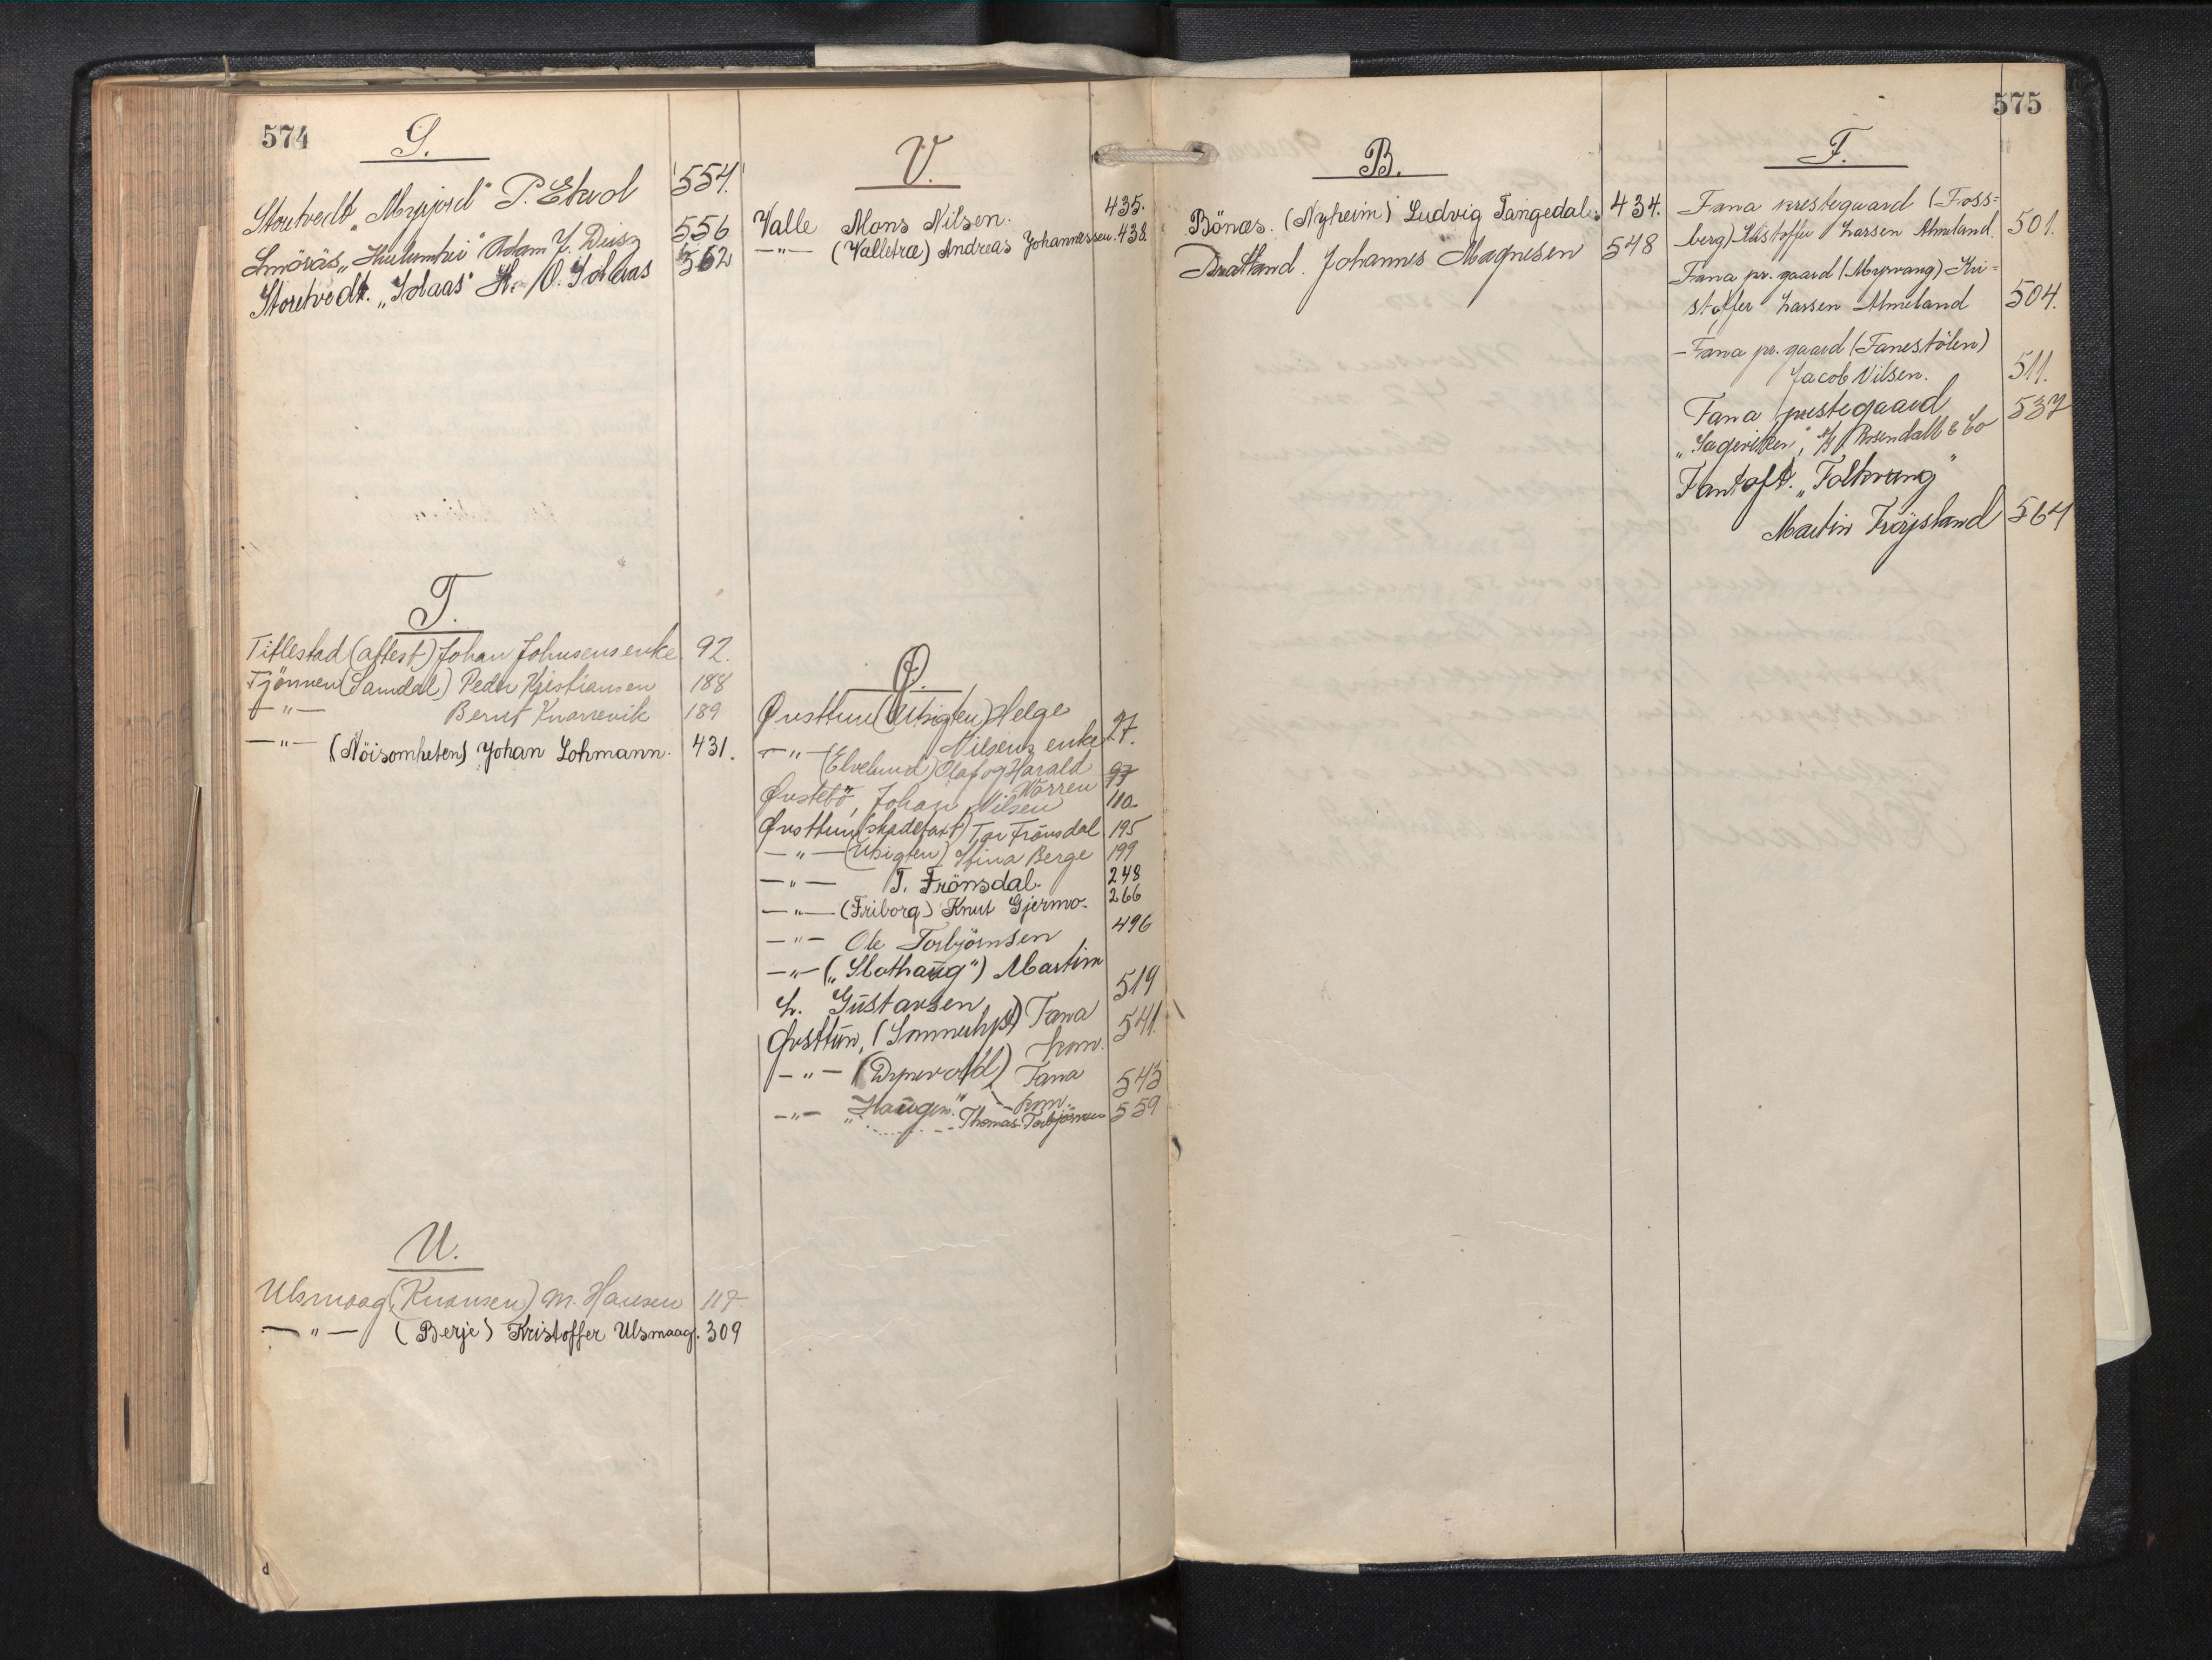 574
S.
Storetvedt „Myrjord" P. Ekvol 554.
Smörås „ Adam H. 556
Storetvedt. „Solaas" H. O. Solaas 562
T.
Titlestad (attest) Johan Johnsens enke 92.
Tjönnen (Samdal) Peder Kristiansen 188
— " — Bernt Knarrevik 189
— " — (Nöisomheten) Johan Lohmann. 431.
U.
Ulsmaag (Knausen) M. Hansen 117
— " — (Berje) Kristoffer Ulsmaag. 309
V.
Valle Mons Nilsen. 435.
— " — (Valletræ) Andreas Johannessen. 438.
Ø.
Øvsttun (Utsigten) Helge
Nilsens enke 27.
— " — (Elvelund) Olaf og Harald 97
Warren
Øvstebö, Johan Nilsen 110
Øvsttun (skadetaxt) T. Frönsdal 195
— " — (Utsigten) Stina Berge 199
— " — T. Frönsdal. 248
— " — (Friborg) Knut Gjermo. 266
— " — Ole Torbjörnsen 496
— " — („Slothaug") Martin
L. Gustavsen 519
Øvsttun, (Sommerlyst) Fana
kom. 541.
— " — (Dyrevold) Fana
kom. 543
— " — „Haugen" Thomas Torbjörnsen 559
575
B.
Bönæs. (Nyheim) Ludvig Tangedal. 434.
Bratland. Johannes Magnesen 548
F.
Fana prestegaard (Foss=
berg) Kristoffer Larsen Almeland. 501.
Fana pr. gaard (Myrvang) Kri=
stoffer Larsen Almeland 504.
— Fana pr. gaard (Fanestölen)
Jacob Nilsen. 511.
Fana prestegaard 537
„ Rosendahl & Co
Fantoft. „Folkvang"
Martin Fröysland 564